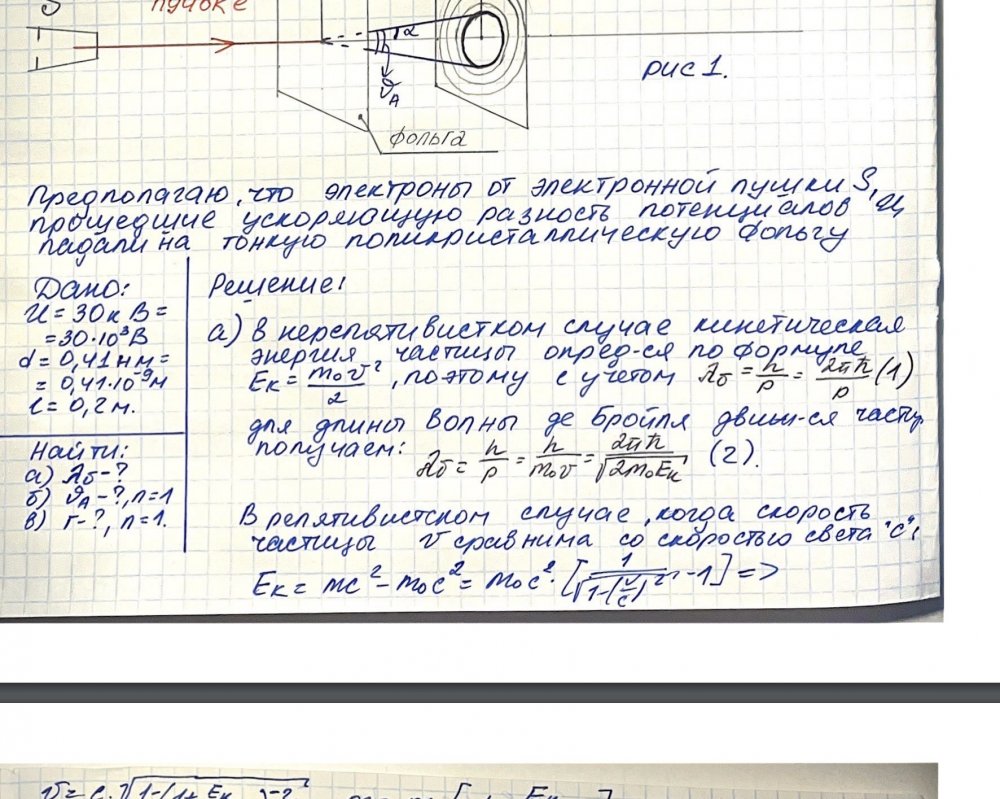 S
пучке
α
ϑA
рис 1.
фольга
Предполагаю, что электроны от электронной пушки S,
прошедшие ускоряющую разность потенциалов U,
падали на тонкую поликристаллическую фольгу
Дано:
U = 30 кВ =
= 30·10³ В
d = 0,41 нм =
= 0,41·10⁻⁹ м
l = 0,2 м.
Найти:
а) λб - ?
б) ϑA - ?, n=1
в) r - ?, n=1.
Решение:
а) В нерелятивистком случае кинетическая
энергия частицы опред-ся по формуле
Eк = m₀v²/2, поэтому с учетом λб = h/p = 2πħ/p (1)
для длины волны де Бройля движ-ся частиц
получаем: λб = h/p = h/m₀v = 2πħ/√(2m₀Eк) (2).
В релятивистском случае, когда скорость
частицы v сравнима со скоростью света "c",
Eк = mc² - m₀c² = m₀c²·[1/√(1-(v/c)²) - 1] =>